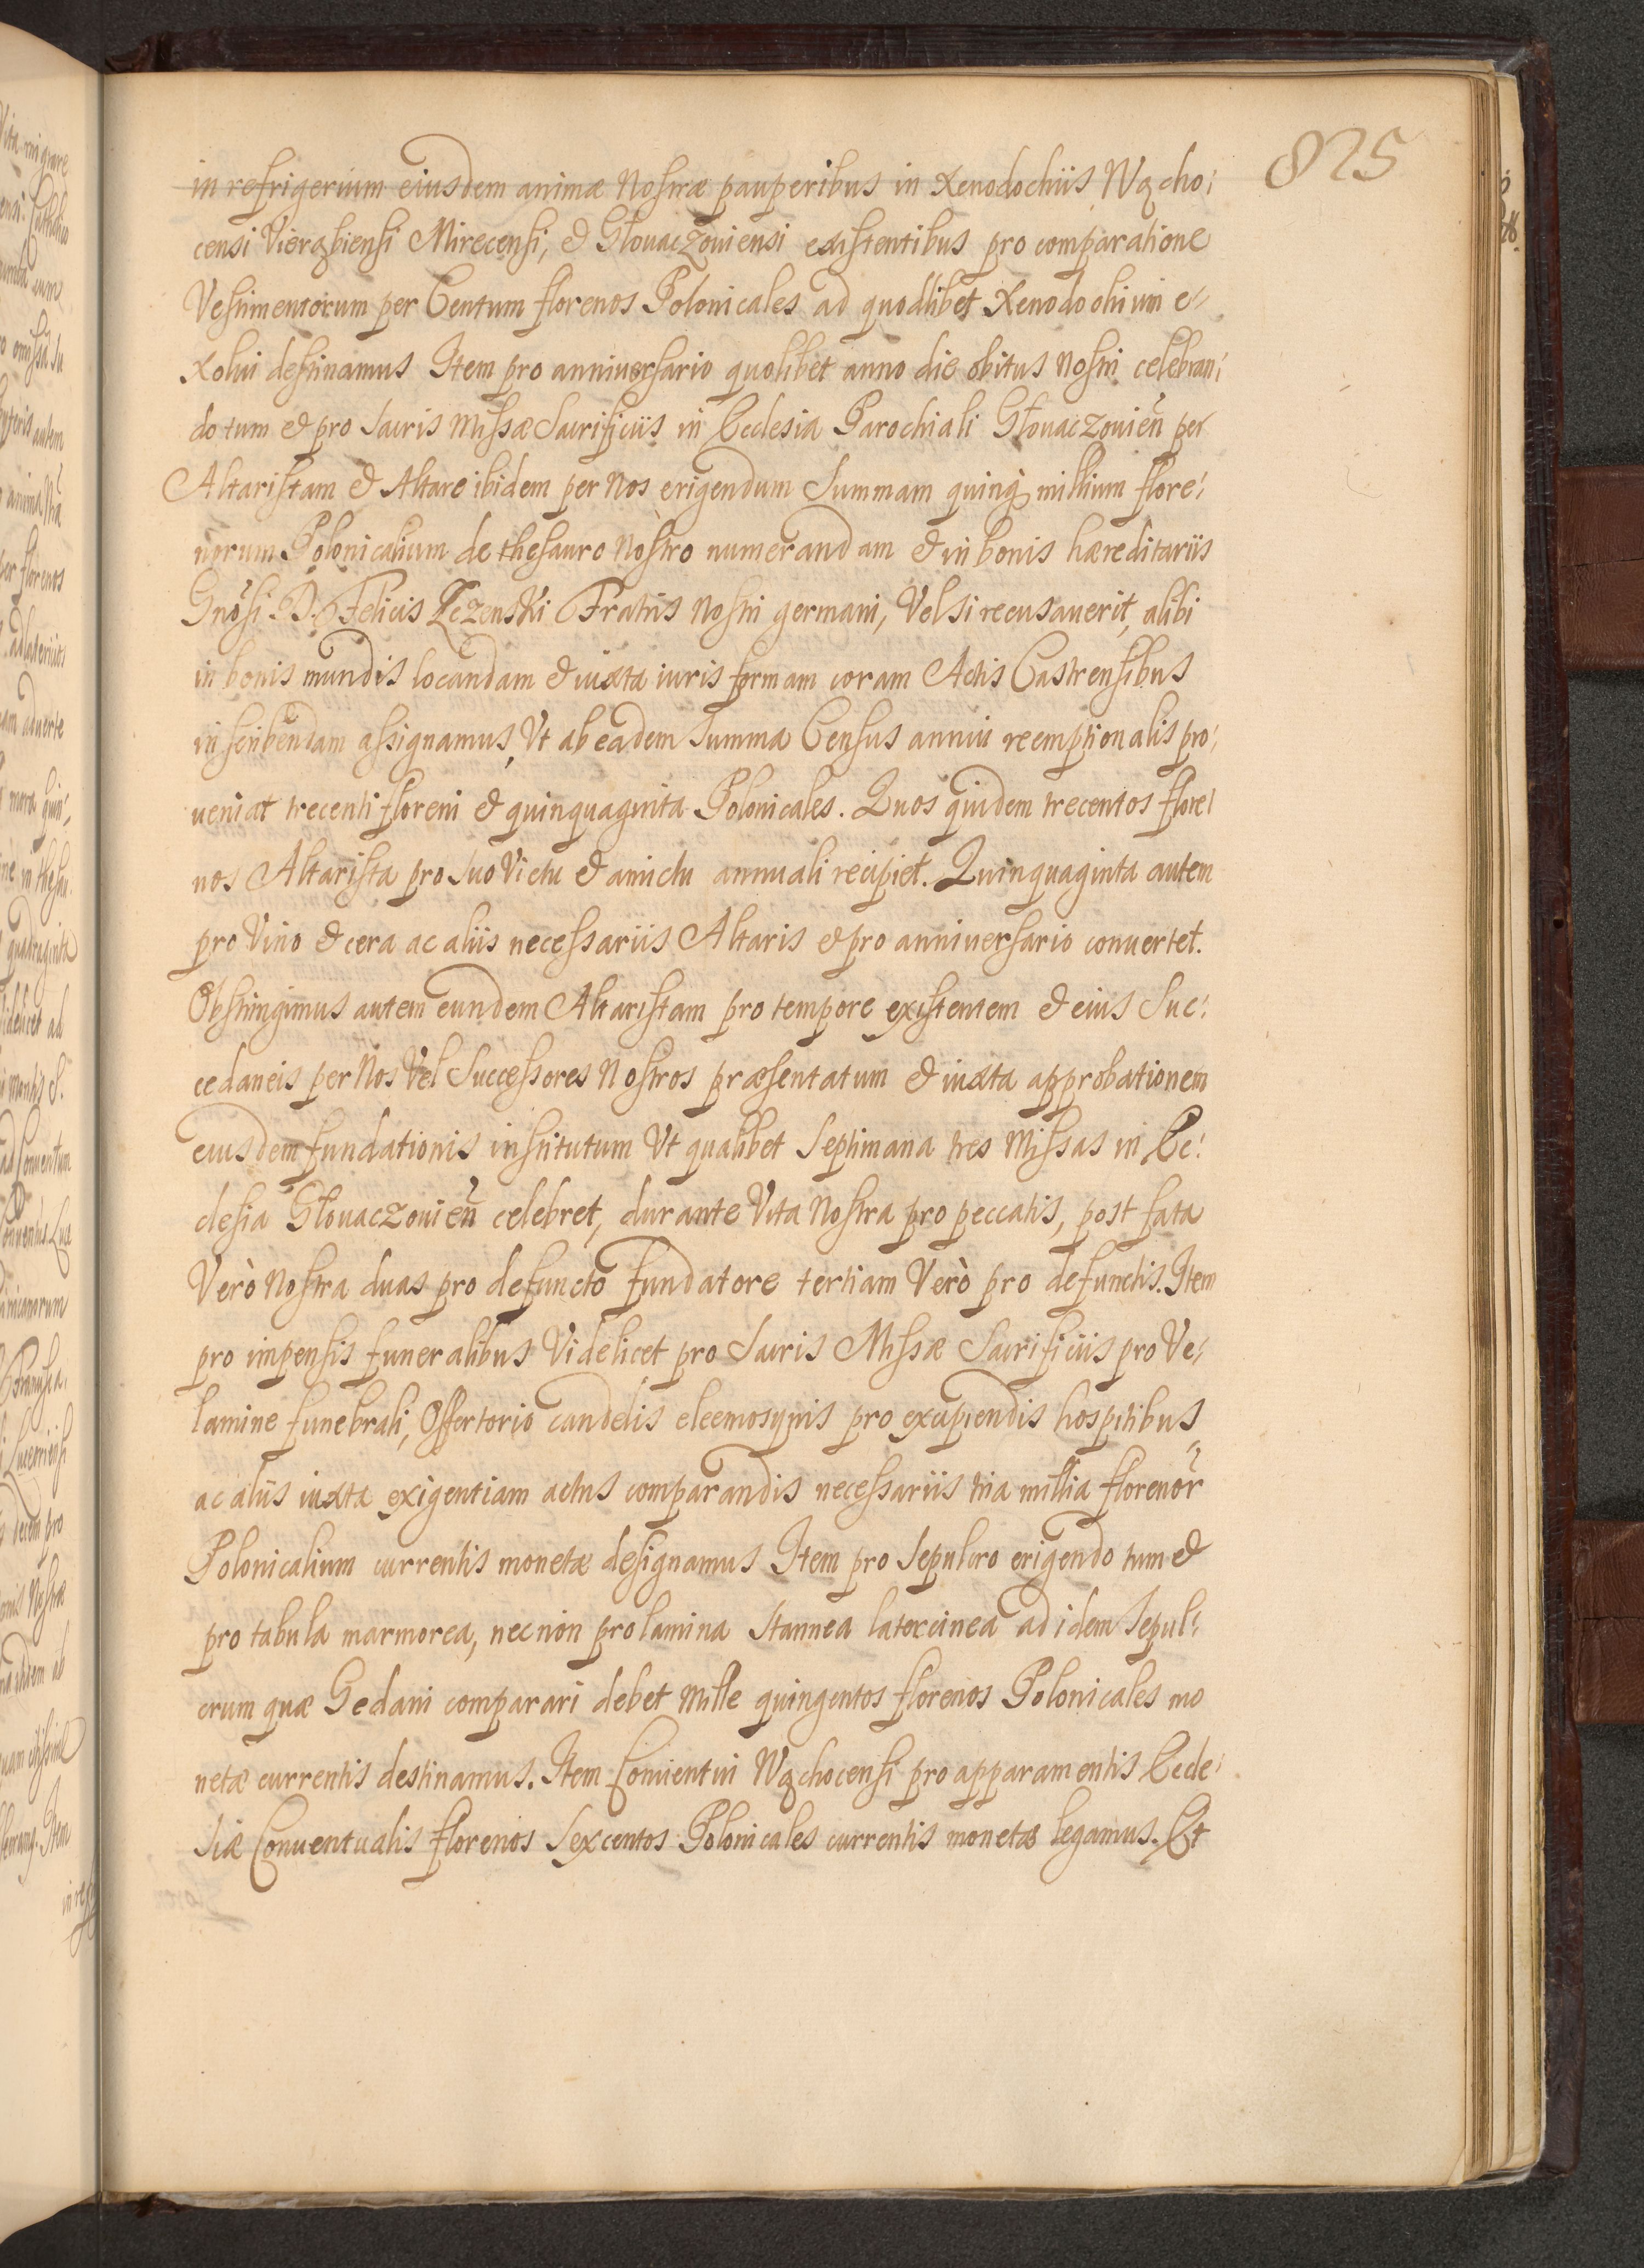 825
in refrigerium eiusdem animæ Nostræ pauperibus in Xenodochiis Wącho:
censi Vierzbiensi Mirecensi, & Głouaczouiensi existentibus pro comparatione
Vestimentorum per Centum florenos Polonicales ad quodlibet Xenodochium e:
xolui destinamus Item pro anniuersario quolibet anno die obitus Nostri celebran:
do tum & pro Sacris Missæ Sacrificiis in Ecclesia Parochiali Głouaczouien̄ per
Altaristam & Altare ibidem per Nos erigendum Summam quinq̨ millium flore:
norum Polonicalium de thesauro Nostro numerandam & in bonis hæreditariis
Gnōsi D. Felicis Zezenski Fratris Nostri germani, Vel si recusauerit, alibi
in bonis mundis locandam & iuxta iuris formam coram Actis Castrensibus
inscribendam assignamus, Vt ab eadem Summa Census annui reemptionalis pro:
ueniat trecenti floreni & quinquaginta Polonicales. Quos quidem trecentos flore:
nos Altarista pro suo Victu & amictu annuali recipiet. Quinquaginta autem
pro Vino & cera ac aliis necessariis Altaris & pro anniuersario conuertet.
Obstringimus autem eundem Altaristam pro tempore existentem & eius Suc:
cedaneis per Nos Vel Successores Nostros præsentatum & iuxta approbationem
eiusdem fundationis institutum Vt qualibet Septimana tres Missas in Ec:
clesia Głouaczouien̄ celebret, durante Vita Nostra pro peccatis, post fata
Verò Nostra duas pro defuncto fundatore tertiam Verò pro defunctis. Item
pro impensis funeralibus Videlicet pro Sacris Missæ Sacrificiis pro Ve:
lamine funebrali, Offertorio candelis eleemosynis pro excipiendis hospitibus
ac aliis iuxta exigentiam actus comparandis necessariis tria millia florenor̄
Polonicalium currentis monetæ designamus Item pro Sepulcro erigendo tum &
pro tabula marmorea, necnon pro lamina Stannea latercinea ad idem Sepul:
crum quæ Gedani comparari debet Mille quingentos florenos Polonicales mo
netæ currentis destinamus. Item Conuentui Wąchocensi pro apparamentis Eccle:
siæ Conuentualis florenos Sexcentos Polonicales currentis monetæ legamus. Et